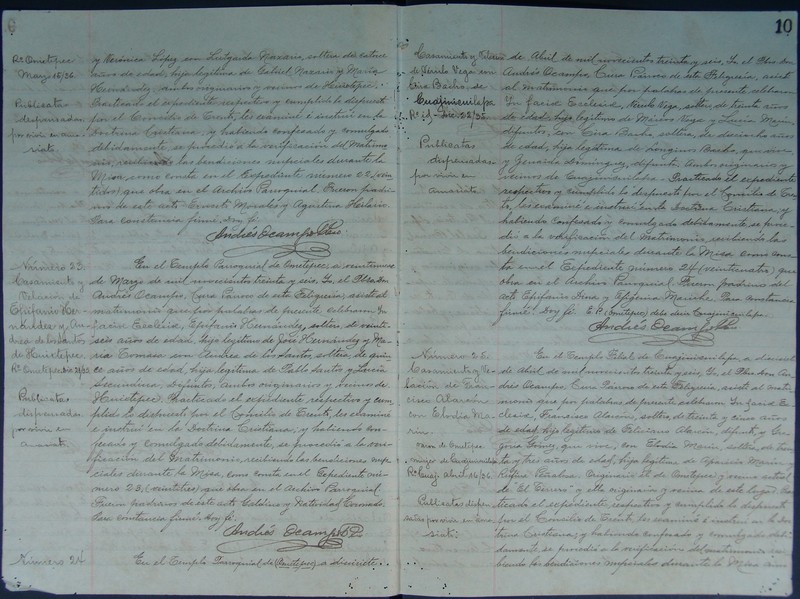 10
Rº Ometepec
Marzo 15/36.
Publicatas
dispensadas
por vivir en ama
siato.
y Verónica López con Lutgarda Nazario, soltera de catorce
años de edad, hija legítima de Gabriel Nazario y María
Hernández, ambos originarios y vecinos de Huistepec.
Practicado el expediente respectivo y cumplido lo dispuesto
por el Concilio de Trento, les examiné é instruí en la
Doctrina Cristiana; y habiendo confesado y comulgado
debidamente, se procedió a la verificación del Matrimo
nio, recibiendo las bendiciones nupciales durante la
Misa, como consta en el Expediente número 22 (vein
tidos) que obra en el Archivo Parroquial. Fueron padri
nos de este acto Ernesto Morales y Agustina Hilario.
Para constancia firmé. Doy fé.
Andrés Ocampo Pbro.
Número 23.
Casamiento y
Velación de
Epifanio Her-
nández y An-
drea de los Santos
de Huistepec.
Rº Ometepec
Publicatas
dispensadas
por vivir en
amasiato.
En el Templo Parroquial de Ometepec, a veintinueve
de Marzo de mil novecientos treinta y seis. Yo, el Pbro. Don
Andrés Ocampo, Cura Párroco de esta Feligresía, asistí al
matrimonio que por palabras de presente celebraron In
facie Ecclesia, Epifanio Hernández, soltero, de veinte
seis años de edad, hijo legítimo de José Hernández y Ma
ría Tomasa con Andrea de los Santos, soltera, de quin
ce años de edad, hija legítima de Pablo Santos y Lucía
Secundina, difuntos, ambos originarios y vecinos de
Huistepec. Practicado el expediente respectivo y cum
plido lo dispuesto por el Concilio de Trento, les examiné
é instruí en la Doctrina Cristiana; y habiendo con
fesado y comulgado debidamente, se procedió a la veri
ficación del Matrimonio, recibiendo las bendiciones nup
ciales durante la Misa, como consta en el Expediente nú
mero 23, (veintitres) que obra en el Archivo Parroquial.
Fueron padrinos de este acto Galdino y Natividad Coronado.
Para constancia firmé. Doy fé.
Andrés Ocampo Pbro.
Número 24
En el Templo Parroquial de (Ometepec) a diecisiete
Casamiento y Velación
de Nérulo Vega con
Cira Bacho, de
Cuajinicuilapa
Rº id. Dic. 22/35.
Publicatas
dispensadas
por vivir en
amasiato
de Abril de mil novecientos treinta y seis. Yo el Pbro. Don
Andrés Ocampo, Cura Párroco de esta Feligresía, asistí
al Matrimonio que por palabras de presente celebraron
In facie Ecclesia, Vega, soltero, de treinta años
de edad, hijo legítimo de Vega y Marín,
difuntos, con Cira Bacho, soltera, de dieciocho años
de edad, hija legítima de Longinos Bacho, que vive
y Genaida Domínguez, difunta. Ambos originarios y
vecinos de Cuajinicuilapa. Practicado el expediente
respectivo y cumplido lo dispuesto por el Concilio de Tren
to, les examiné é instruí en la Doctrina Cristiana, y
habiendo confesado y comulgado debidamente se proce
dió a la verificación del Matrimonio, recibiendo las
bendiciones nupciales durante la Misa como cons
ta en el Expediente número 24 (veinticuatro) que
obra en el Archivo Parroquial. Fueron padrinos del
acto Epifanio y Efigenia. Para constancia
firmé. Doy fé. E. P. (Ometepec) debe decir Cuajinicuilapa.
Andrés Ocampo Pbro.
Número 25.
Casamiento y Ve-
lación de Fran-
cisco Alarcón
con Elodia Ma-
rín.
vecino de Ometepec
Rº Cuaj. Abril 16/36.
Publicatas dispen-
sadas por vivir en ama
siato.
En el Templo Filial de Cuajinicuilapa, a dieciocho
de Abril de mil novecientos treinta y seis. Yo, el Pbro. Don An-
drés Ocampo, Cura Párroco de esta Feligresía, asistí al matri
monio que por palabras de presente celebraron In facie Ec
clesia, Francisco Alarcón, soltero, de treinta y cinco años
de edad, hijo legítimo de Feliciano Alarcón, difunto, y Gre
goria Gómez, que vive, con Elodia Marín, soltera, de trein
ta y tres años de edad, hija legítima de Aparicio Marín y
Rufina Peñaloza. Originario él de Ometepec y vecino actual
de "El Terrero" y ella originaria y vecina de este lugar. Prac
ticado el expediente respectivo y cumplido lo dispuesto
por el Concilio de Trento, les examiné é instruí en la Doc
trina Cristiana; y habiendo confesado y comulgado debi
damente, se procedió a la verificación del matrimonio reci
biendo las bendiciones nupciales durante la Misa como